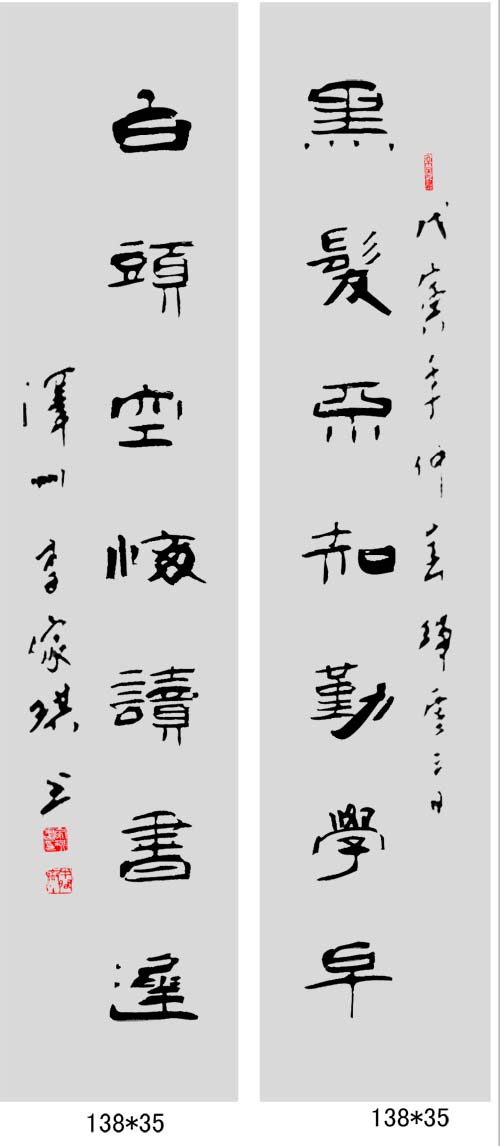 戊寅年仲春 二月
黑髮不知勤學早
白頭空悔讀書遲
澤州李家琪
138*35
138*35